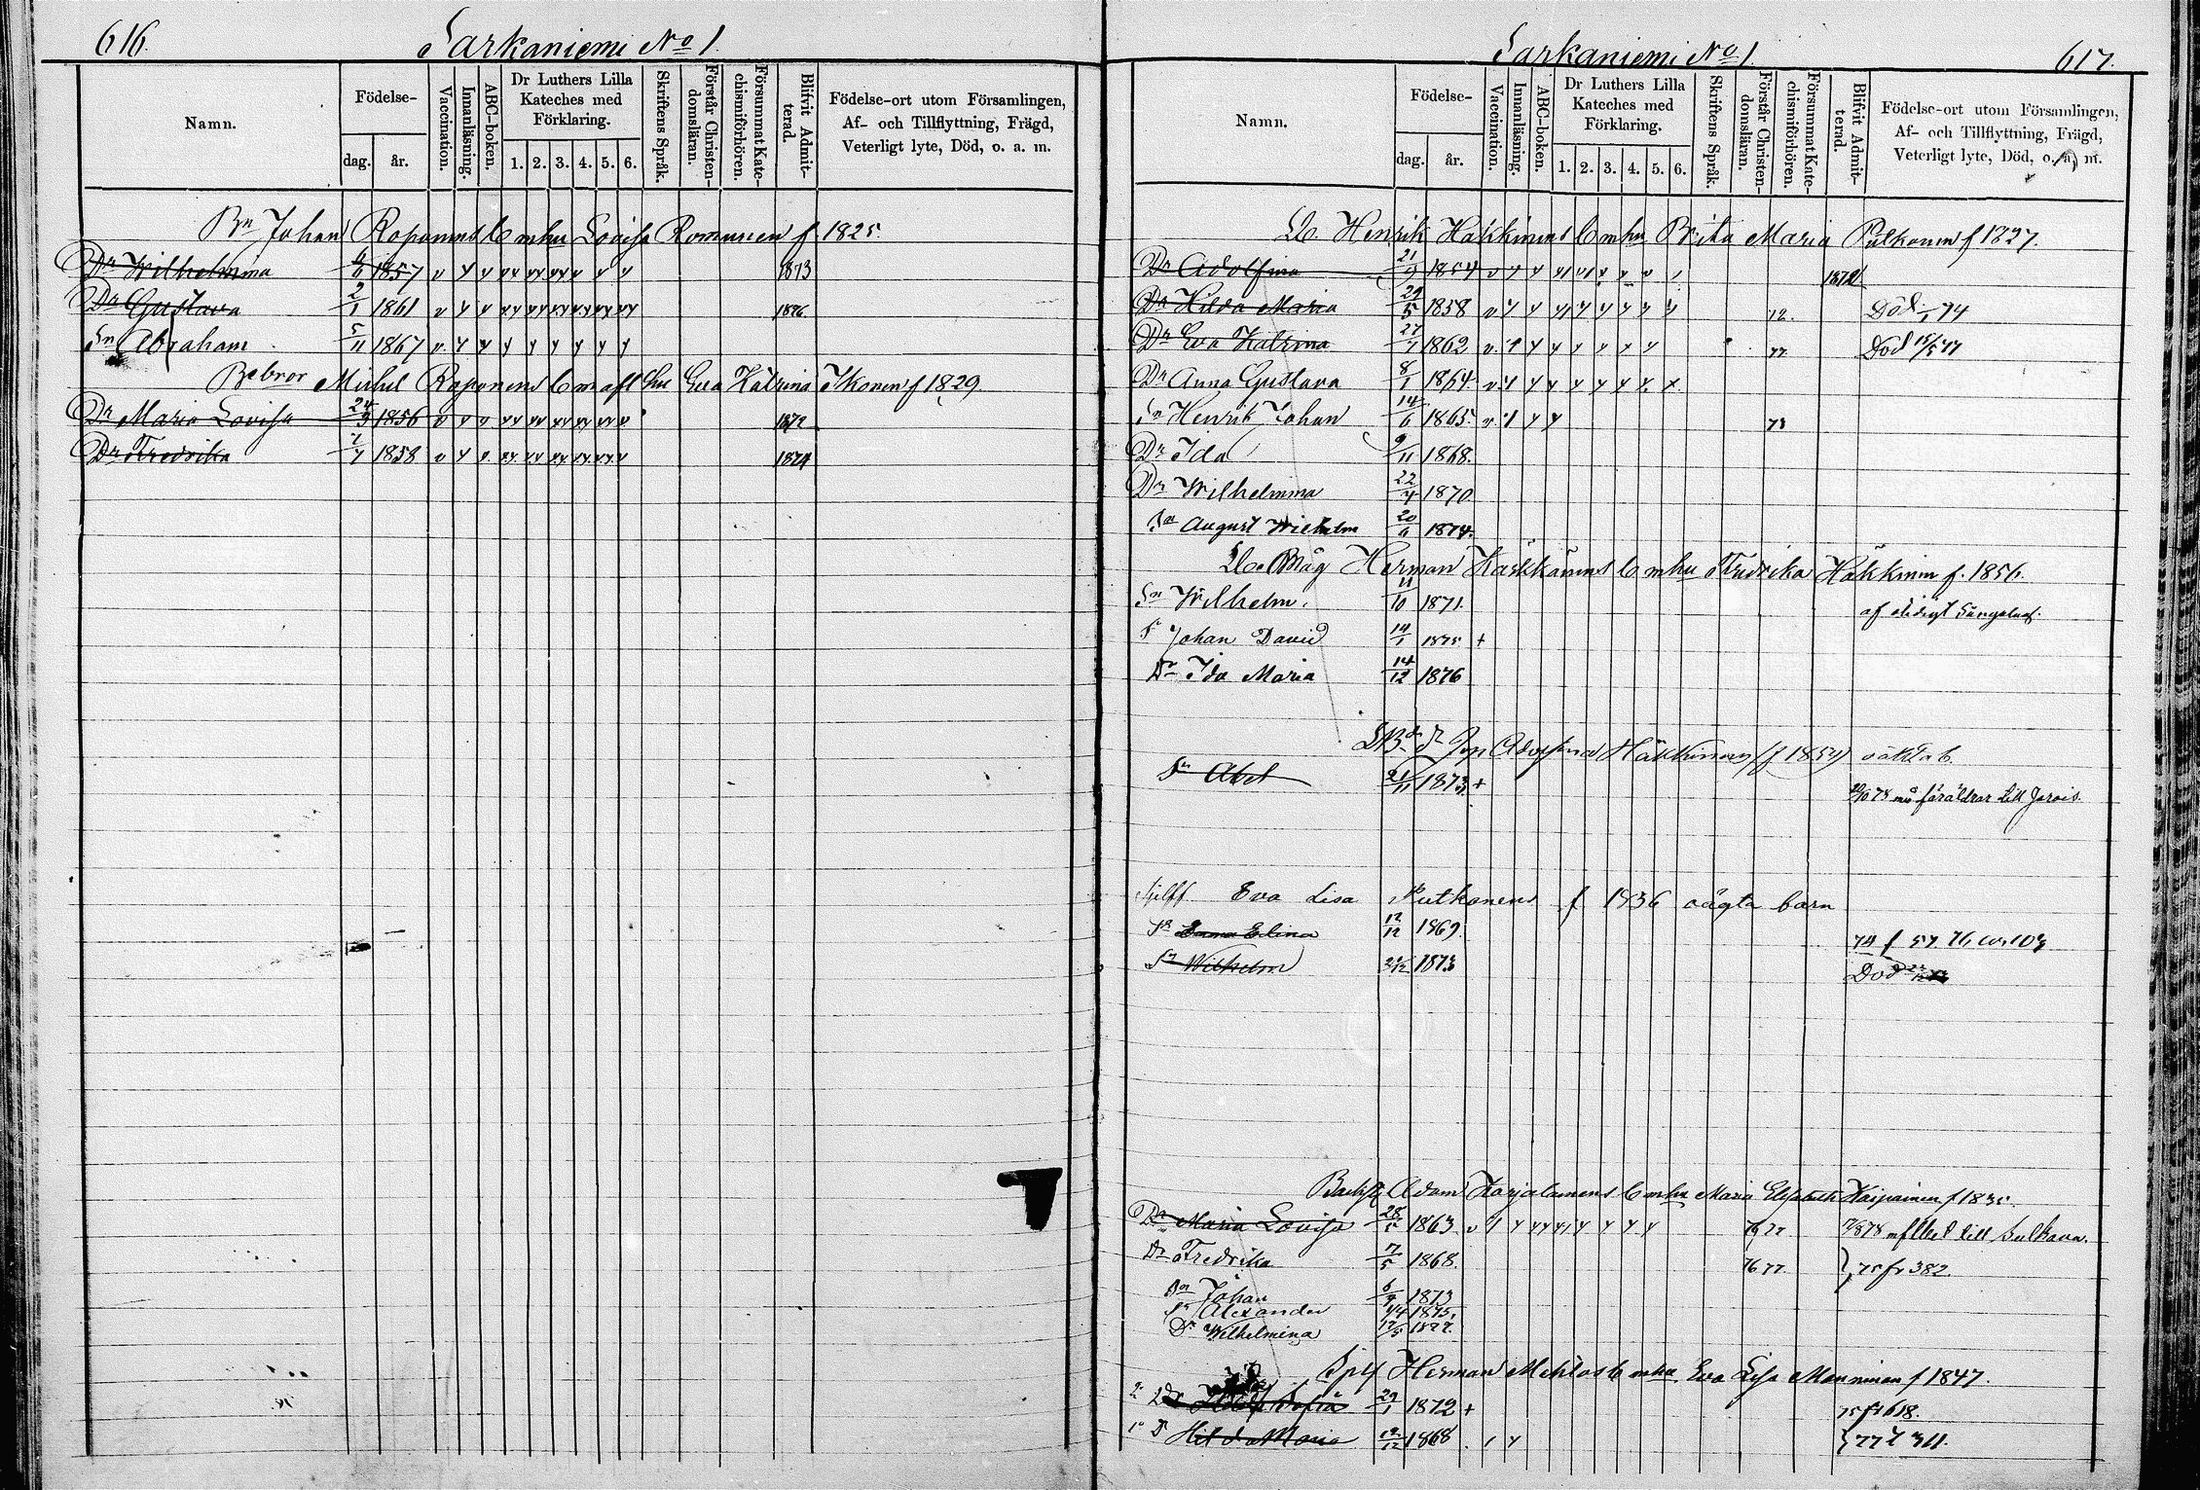 616.
Sarkaniemi No 1.
Namn.
Födelse-
dag.
år.
Vaccination.
Innanläsning.
ABC-boken.
Dr Luthers Lilla
Kateches med
Förklaring.
1. 2. 3. 4. 5. 6.
Skriftens Språk.
Förstår Christen-
domsläran.
Försummat Kate-
chismiförhören.
Blifvit Admit-
terad.
Födelse-ort utom Församlingen,
Af- och Tillflyttning, Frägd,
Veterligt lyte, Död, o. a. m.
Bn Johan Roponens b mhu Lovisa Romunen f 1825.
Dr Wilhelmina 4/6 1857 1873
Dr Gustava 2/1 1861 1876
Sn Abraham 5/11 1867
Bs bror Michel Roponens b m afl hu Eva Katrina Ikonen f 1829.
Dr Maria Lovisa 24/3 1856 1872
Dr Fredrika 1/7 1858 1874
Sarkaniemi No 1.
617.
Namn.
Födelse-
dag.
år.
Vaccination.
Innanläsning.
ABC-boken.
Dr Luthers Lilla
Kateches med
Förklaring.
1. 2. 3. 4. 5. 6.
Skriftens Språk.
Förstår Christen-
domsläran.
Försummat Kate-
chismiförhören.
Blifvit Admit-
terad.
Födelse-ort utom Församlingen,
Af- och Tillflyttning, Frägd,
Veterligt lyte, Död, o. a. m.
Henrik Häkkinens b mhu Brita Maria Pulkonen f 1827.
Dr Adolfina 21/9 1854 1872
Dr Hilda Maria 29/5 1858 72. Död 74
Dr Eva Katrina 27/7 1862 77 Död 15/5 77
Dr Anna Gustava 8/1 1864
Sn Henrik Johan 14/6 1865 73
Dr Ida 9/11 1868.
Dr Wilhelmina 22/4 1870
Sn August Wilhelm 20/6 1874.
Måg Herman Härkkänens b mhu Fredrika Häkkinen f. 1856.
Sn Wilhelm. 11/10 1871.
Sn Johan David 14/1 1875 +
Dr Ida Maria 14/12 1876
Adolfina Häkkinens (f 1854) oäkta b.
Sn Abel 21/11 1873 +
78 m föräldrar till Jorois.
Sjelff. Eva Lisa Putkonens f 1836 oägta barn
Emma Elina 12/12 1869.
74 f 57.
Sn Wilhelm 21/2 1873
Död
Adam Karjalainens b mhu Maria Elisabeth Kaipainen f 1835.
Dr Maria Lovisa 28/5 1863 76 77 till Sulkava.
Dr Fredrika 7/5 1868. 76 77. } 75 fr 382
Sn Johan 6/9 1873
Sn Alexander 4/4 1875.
Dr Wilhelmina 17/5 1877.
Herman Mehtos b mhu Eva Lisa Manninen f 1847.
2 Dr Sofia 29/1 1872 + 75 fr 618.
1 D Hilda Maria 19/12 1868 } 77 t 311.